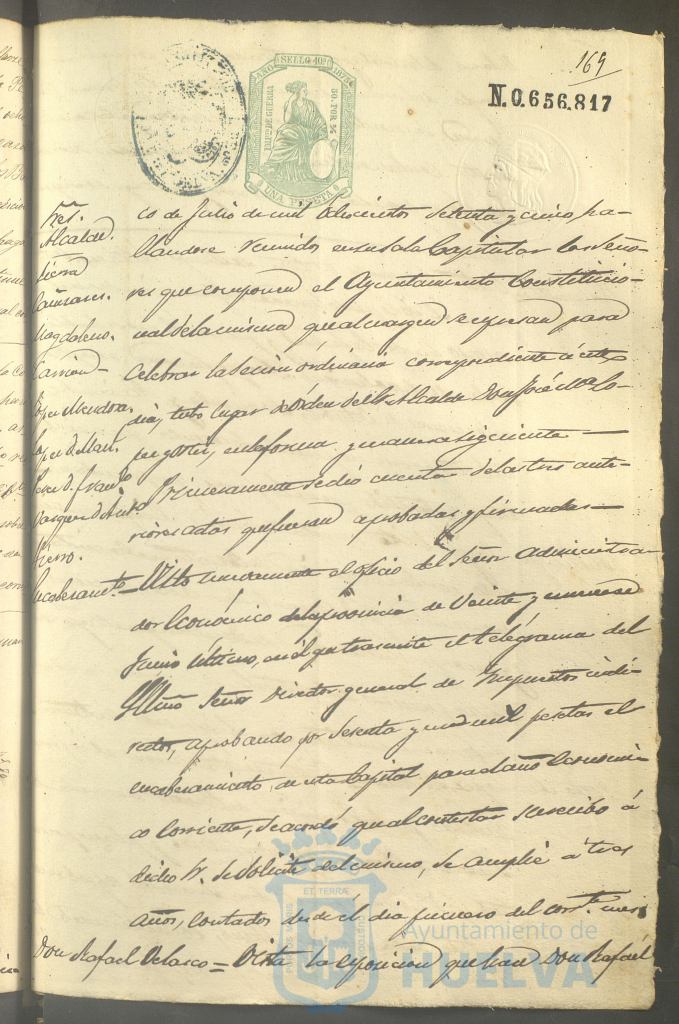 169
N.0.656.817
AÑO SELLO 10º 1875
IMPto DE GUERRA
50 POR %
UNA PESETA
Sres.
Alcalde.
Sierra
Cañizares.
Magdaleno.
Carrion
Lopez Mendoza.
Lopez D. Man.
Perez D. Franco
Vazquez D. Anto
Fierro.
co de Julio de mil ochocientos setenta y cinco, ha-
llandose reunidos en su Sala Capitular los Seño-
res que componen el Ayuntamiento Constitucio-
nal de la misma que al margen se espresan para
celebrar la Sesion ordinaria correspondiente á este
dia, tubo lugar de órden del Sr. Alcalde Don José M.
en la forma y manera siguiente
Primeramente se dió cuenta de las tres ante-
riores actas que fueron aprobadas y firmadas
Encabezamto. = Visto nuevamente el oficio del Señor Administra-
dor Económico de la provincia de Veinte y nueve de
Junio último, en el que trascribe el telégrama del
Illmo Señor Director general de Impuestos indi-
rectos, aprobando por sesenta y un mil pesetas el
encabezamiento de esta Capital para el año Economi-
co Corriente, se acordó que al contestar su recibo á
dicho Sr. se solicite del mismo, se amplie á tres
años, contados desde el dia primero del corrte. mes
Don Rafael Velasco = Vista la esposicion que hace Don Rafael
ET TERRÆ
Ayuntamiento de
HUELVA